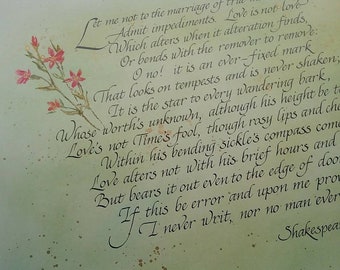 Let me not to the marriage of true
Admit impediments. Love is not love
Which alters when it alteration finds,
Or bends with the remover to remove:
O no! it is an ever-fixed mark
That looks on tempests and is never shaken;
It is the star to every wandering bark,
Whose worth's unknown, although his height be
Love's not Time's fool, though rosy lips and
Within his bending sickle's compass come
Love alters not with his brief hours and
But bears it out even to the edge of doo
If this be error and upon me prov
I never writ, nor no man ever
Shakespea